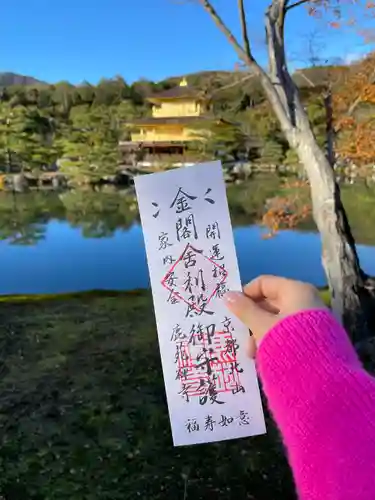 開運招福
金閣舎利殿御守護
家内安全
京都北山
鹿苑禅寺
如意
福寿